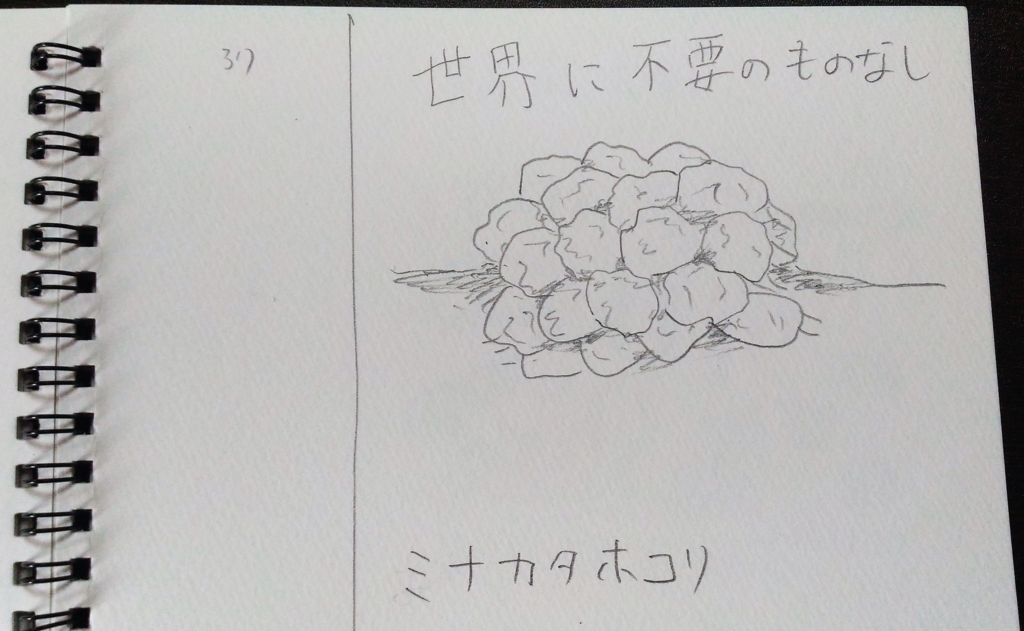 世界に不要のものなし
ミナカタホコリ